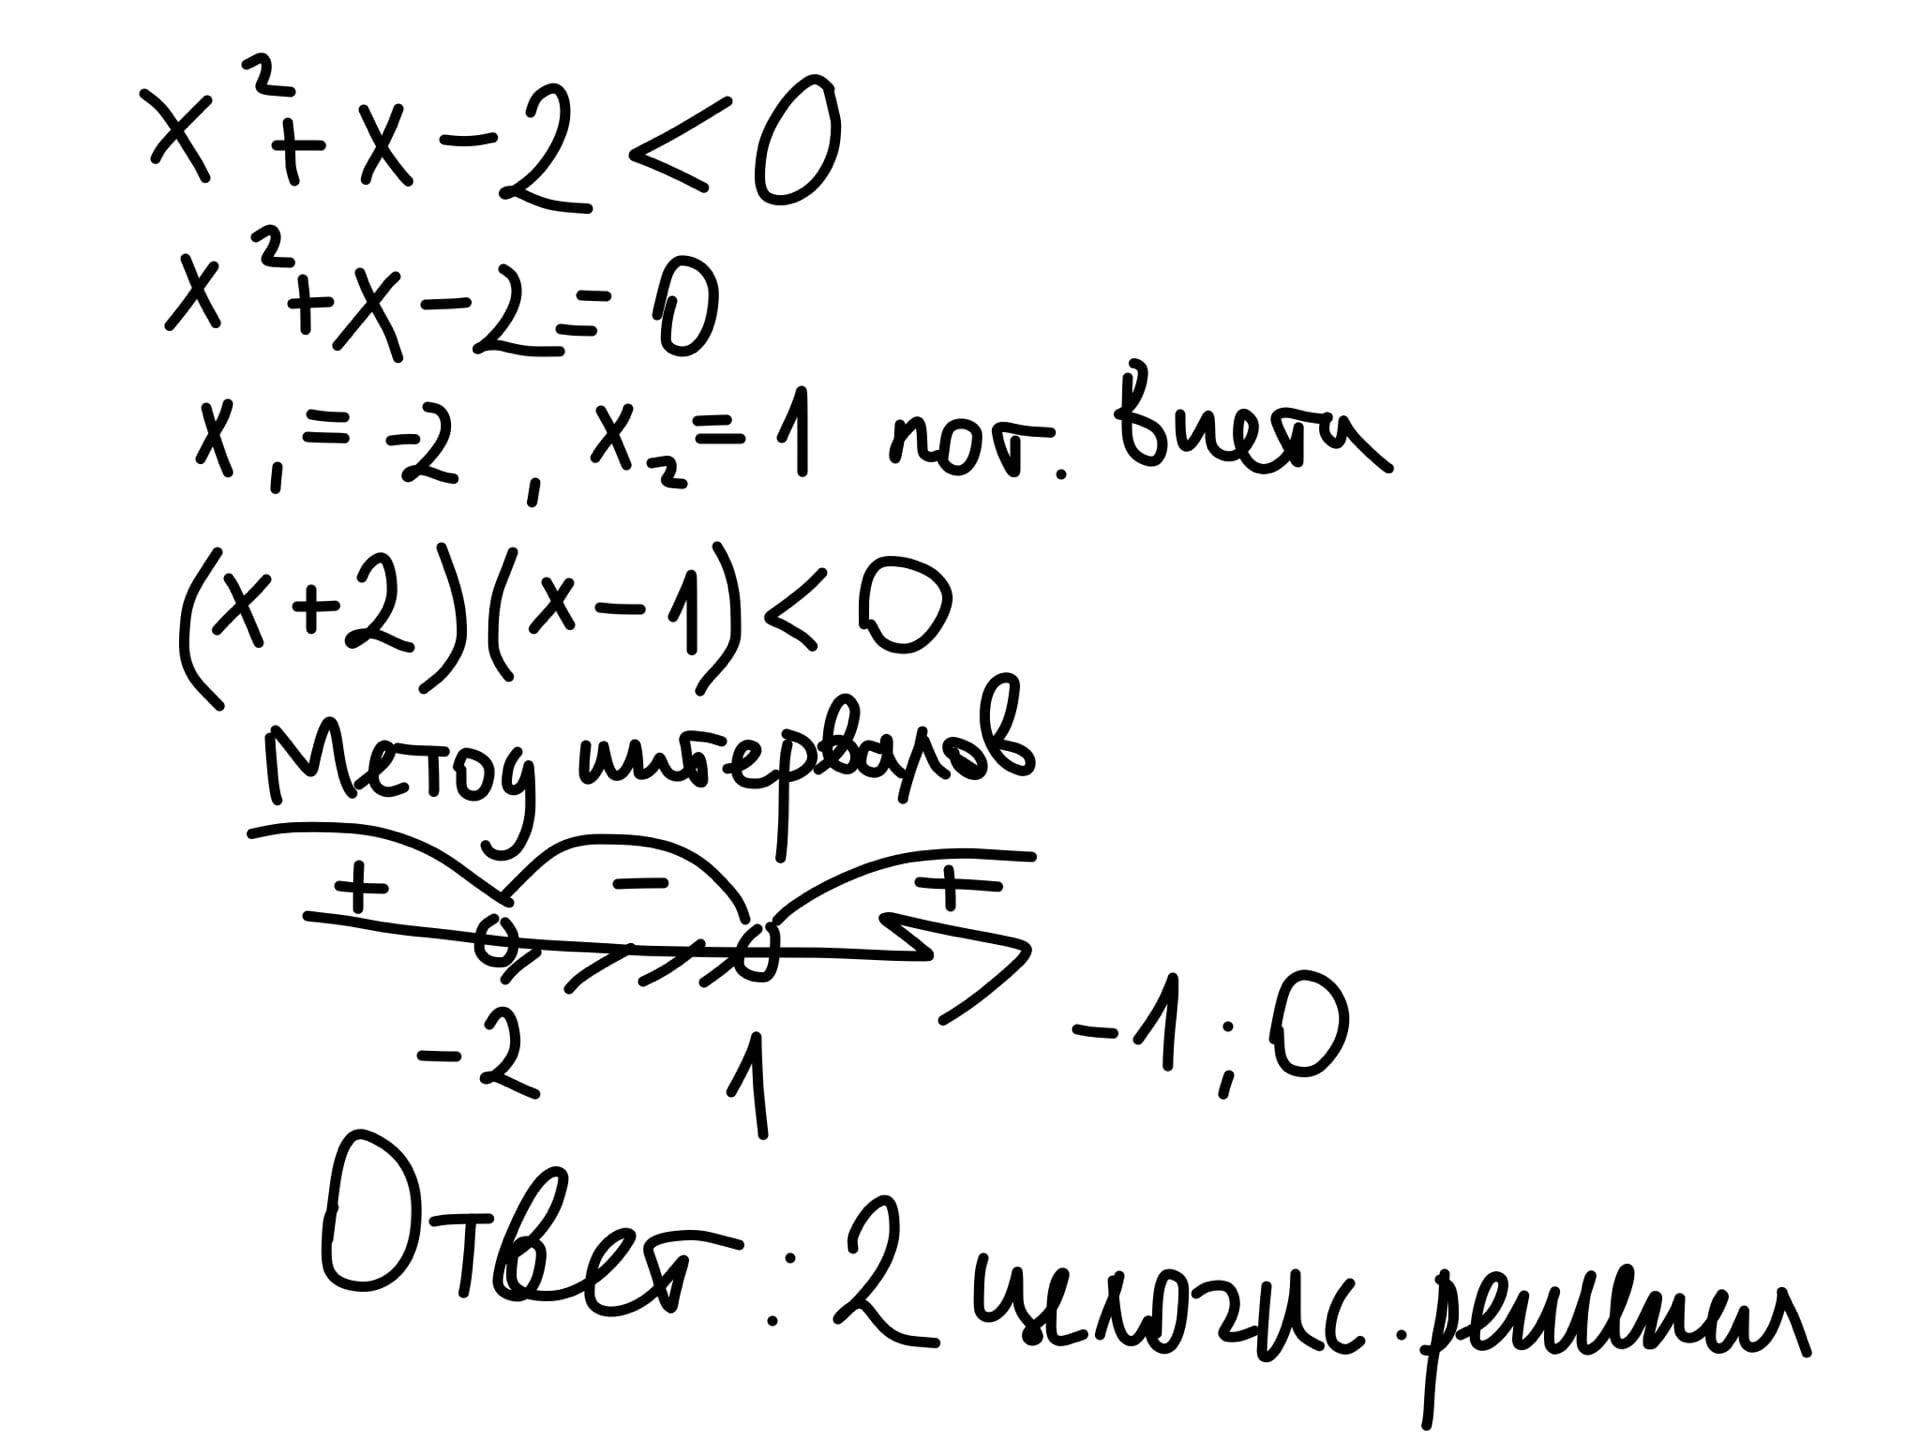 x² + x - 2 < 0
x² + x - 2 = 0
x₁ = -2, x₂ = 1 по т. Виета
(x + 2)(x - 1) < 0
Метод интервалов
+ - +
-2 1 -1; 0
Ответ: 2 целочис. решения